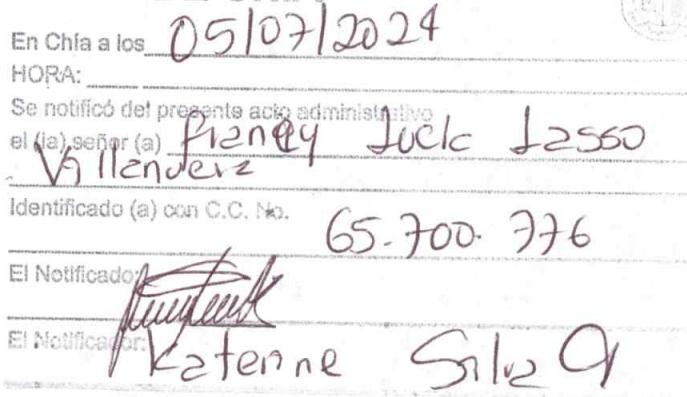 En Chía a los 05/07/2024
HORA:
Se notificó del presente acto administrativo
el (la) señor (a) Lasso
Identificado (a) con C.C. No.
65.700.776
El Notificado:
El Notificador: Katerine Silva